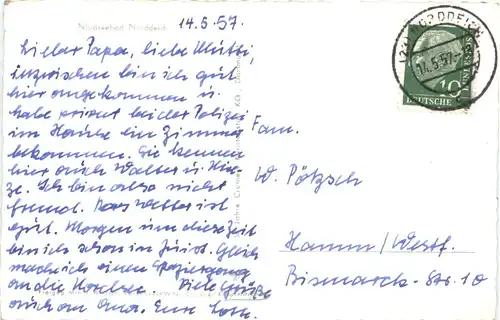 Nordseebad Norddeich
14.5.57.
Lieber Papa, liebe Mutti,
inzwischen bin ich gut
hier angekommen u.
habe privat bei der Polizei
im Hause ein Zimmer
bekommen. Sie kennen
hier auch Walter u.
Ich bin also nicht
fremd. Das Wetter ist
gut. Morgen um diese Zeit
bin ich schon in Juist. Gleich
mache ich einen Spaziergang
an die Nordsee. Viele Grüße
auch an Oma. Eure
Fam.
W. Pötzsch
Hamm/Westf.
Bismarck-Str. 10
NORDDEICH
14.5.57
10
DEUTSCHE BUNDESPOST